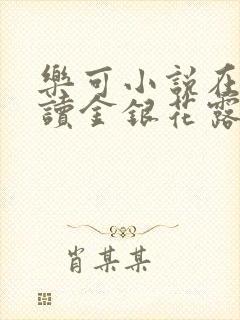 樂可小説在
讀金銀花露
肖某某